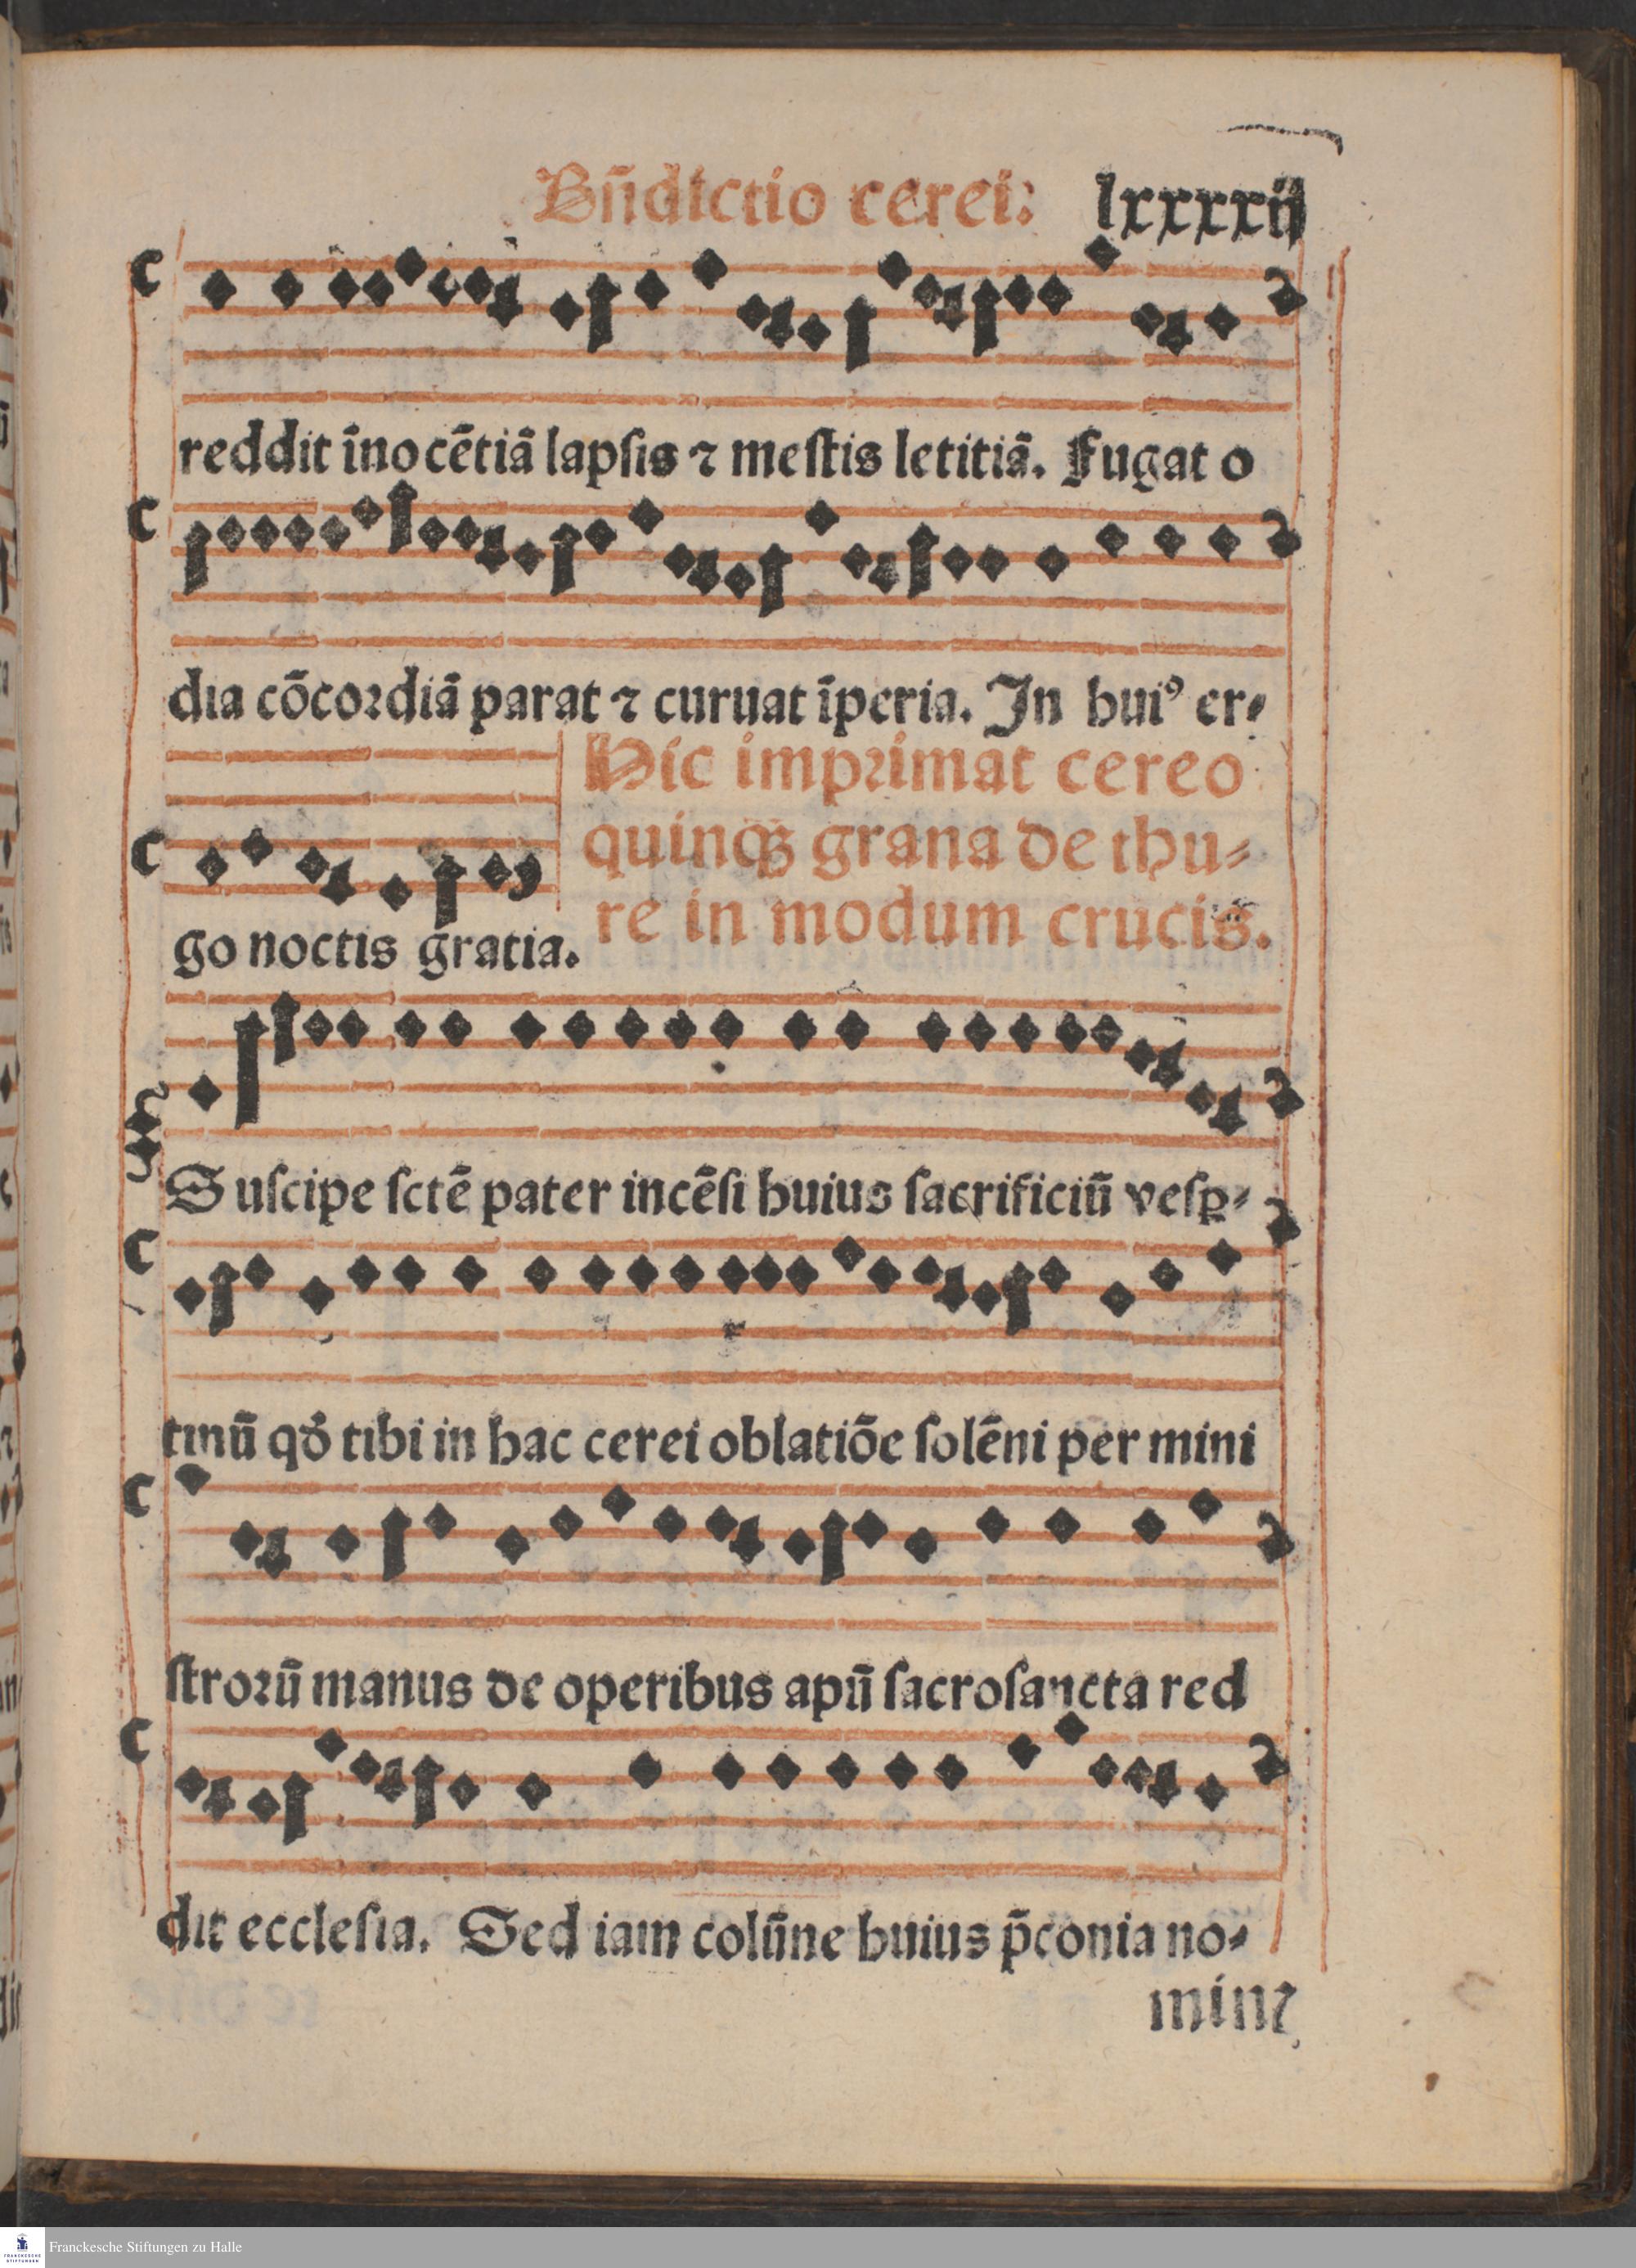 Bñdictio cerei: lxxxxij
reddit īnocētiā lapſis ⁊ meſtis letitiā. Fugat o
dia cōcoꝛdiā parat ⁊ curuat īperia. In huiꝰ er⸗
Hic imprimat cereo
quinqꝫ grana de thu⸗
re in modum crucis.
go noctis gratia.
Suſcipe ſctē pater incēſi huius ſacrificiū veſꝑ⸗
tinū qđ tibi in hac cerei oblatiōe ſolēni per mini
ſtroꝛū manus de operibus apū ſacroſancta red
dit eccleſia. Sed iam colūne huius p̄conia no⸗
minꝫ
Franckesche Stiftungen zu Halle